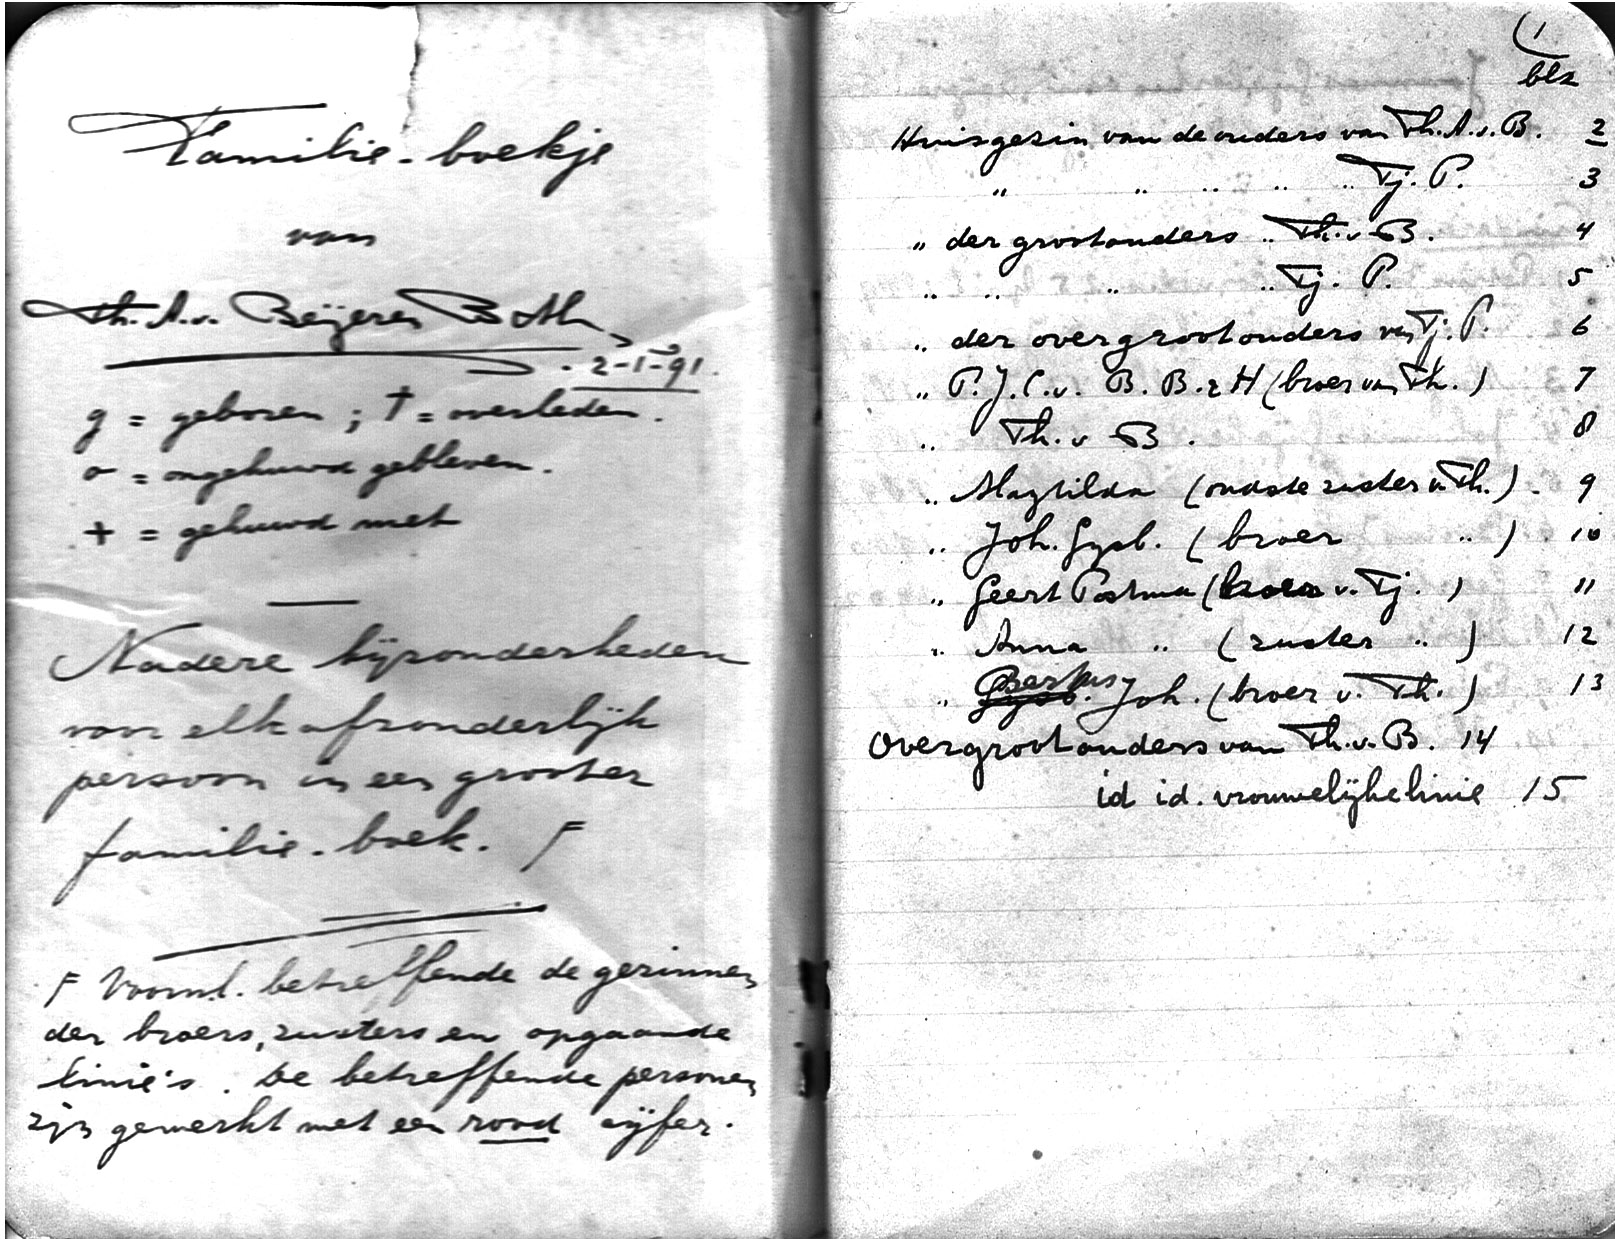 Familie-boekje
van
Th. A. v. Beijeren B
2-1-91.
g = geboren ; † = overleden.
o = ongehuwd gebleven.
+ = gehuwd met
Nadere bijzonderheden
van elk afzonderlijk
persoon in een grooter
familie-boek. F
F Voornl. betreffende de gezinnen
der broers, zusters en opgaande
linie's. De betreffende personen
zijn gemerkt met een rood cijfer.
1
blz
Huisgezin van de ouders van Th. A. v. B. 2
" " " " " Tj. P. 3
" der grootouders " Th. v B. 4
" " " " Tj. P. 5
" der overgrootouders van Tj. P. 6
" P. J. C. v. B. B. z H (broer van Th.) 7
" Th. v B. 8
" Magtilda (oudste zuster v. Th.). 9
" Joh. Gysb. (broer " ) 10
" Geert Postma (broer v. Tj. ) 11
" Anna " (zuster " ) 12
" Gysb. Bertus Joh. (broer v. Th. ) 13
Overgrootouders van Th. v. B. 14
id id. vrouwelijke linie 15